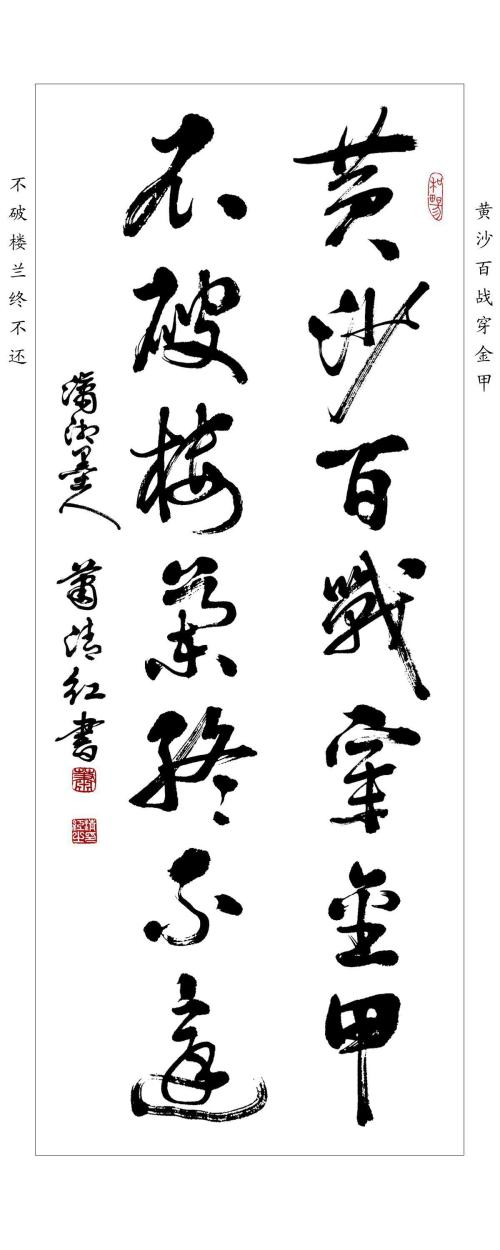 黄沙百战穿金甲
和畅
黄沙百戰穿金甲
不破楼蘭終不還
瀟湘墨人 蕭清红書
不破楼兰终不还